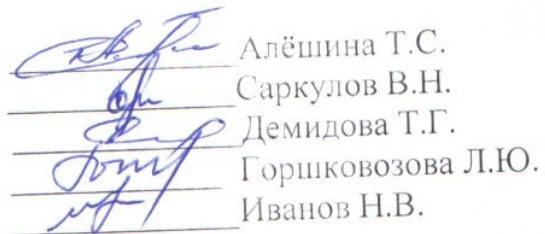 Алёшина Т.С.
Саркулов В.Н.
Демидова Т.Г.
Горшковозова Л.Ю.
Иванов Н.В.